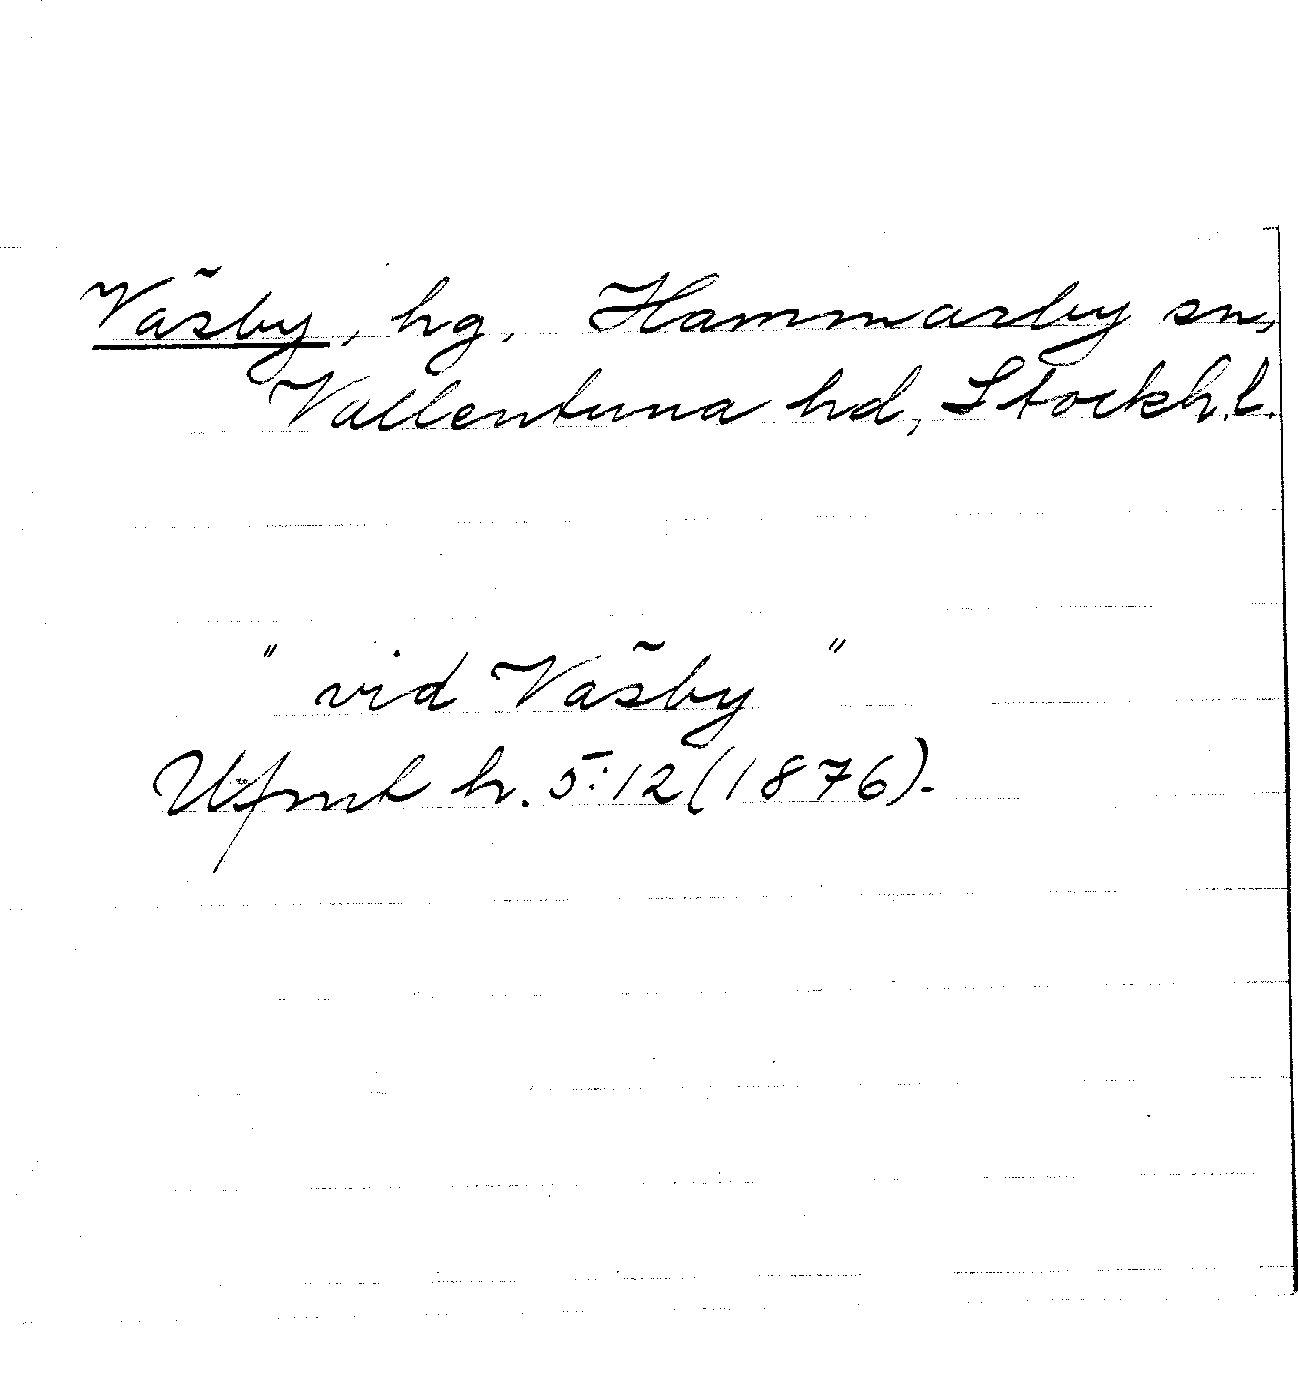 Väsby, hg, Hammarby sn,
Vallentuna hd, Stockh.l.
" vid Väsby "
Ufmt h. 5:12 (1876).